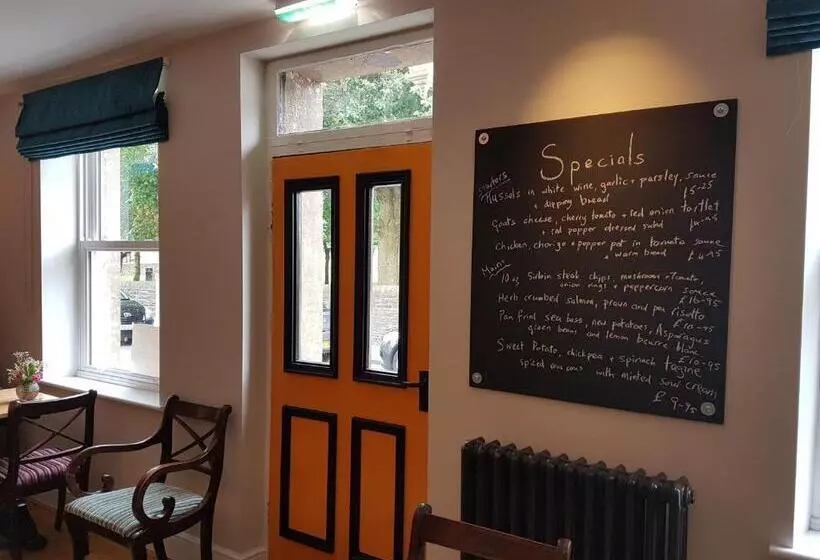 Specials
Starters
Mussels in white wine, garlic + parsley, sauce
+ dipping bread £5-25
Goats cheese, cherry tomato + red onion tartlet
+ red pepper dressed salad
Chicken, chorizo + pepper pot in tomato sauce
+ warm bread £4-95
Mains
10 oz Sirloin steak chips, mushrooms + tomato,
onion rings + peppercorn sauce
£16-95
Herb crumbed salmon, prawn and pea risotto
£10-95
Pan fried sea bass, new potatoes, Asparagus
green beans and lemon beurre blanc
£10-95
Sweet Potato, chickpea + spinach tagine
spiced cous cous with minted sour cream
£9-95